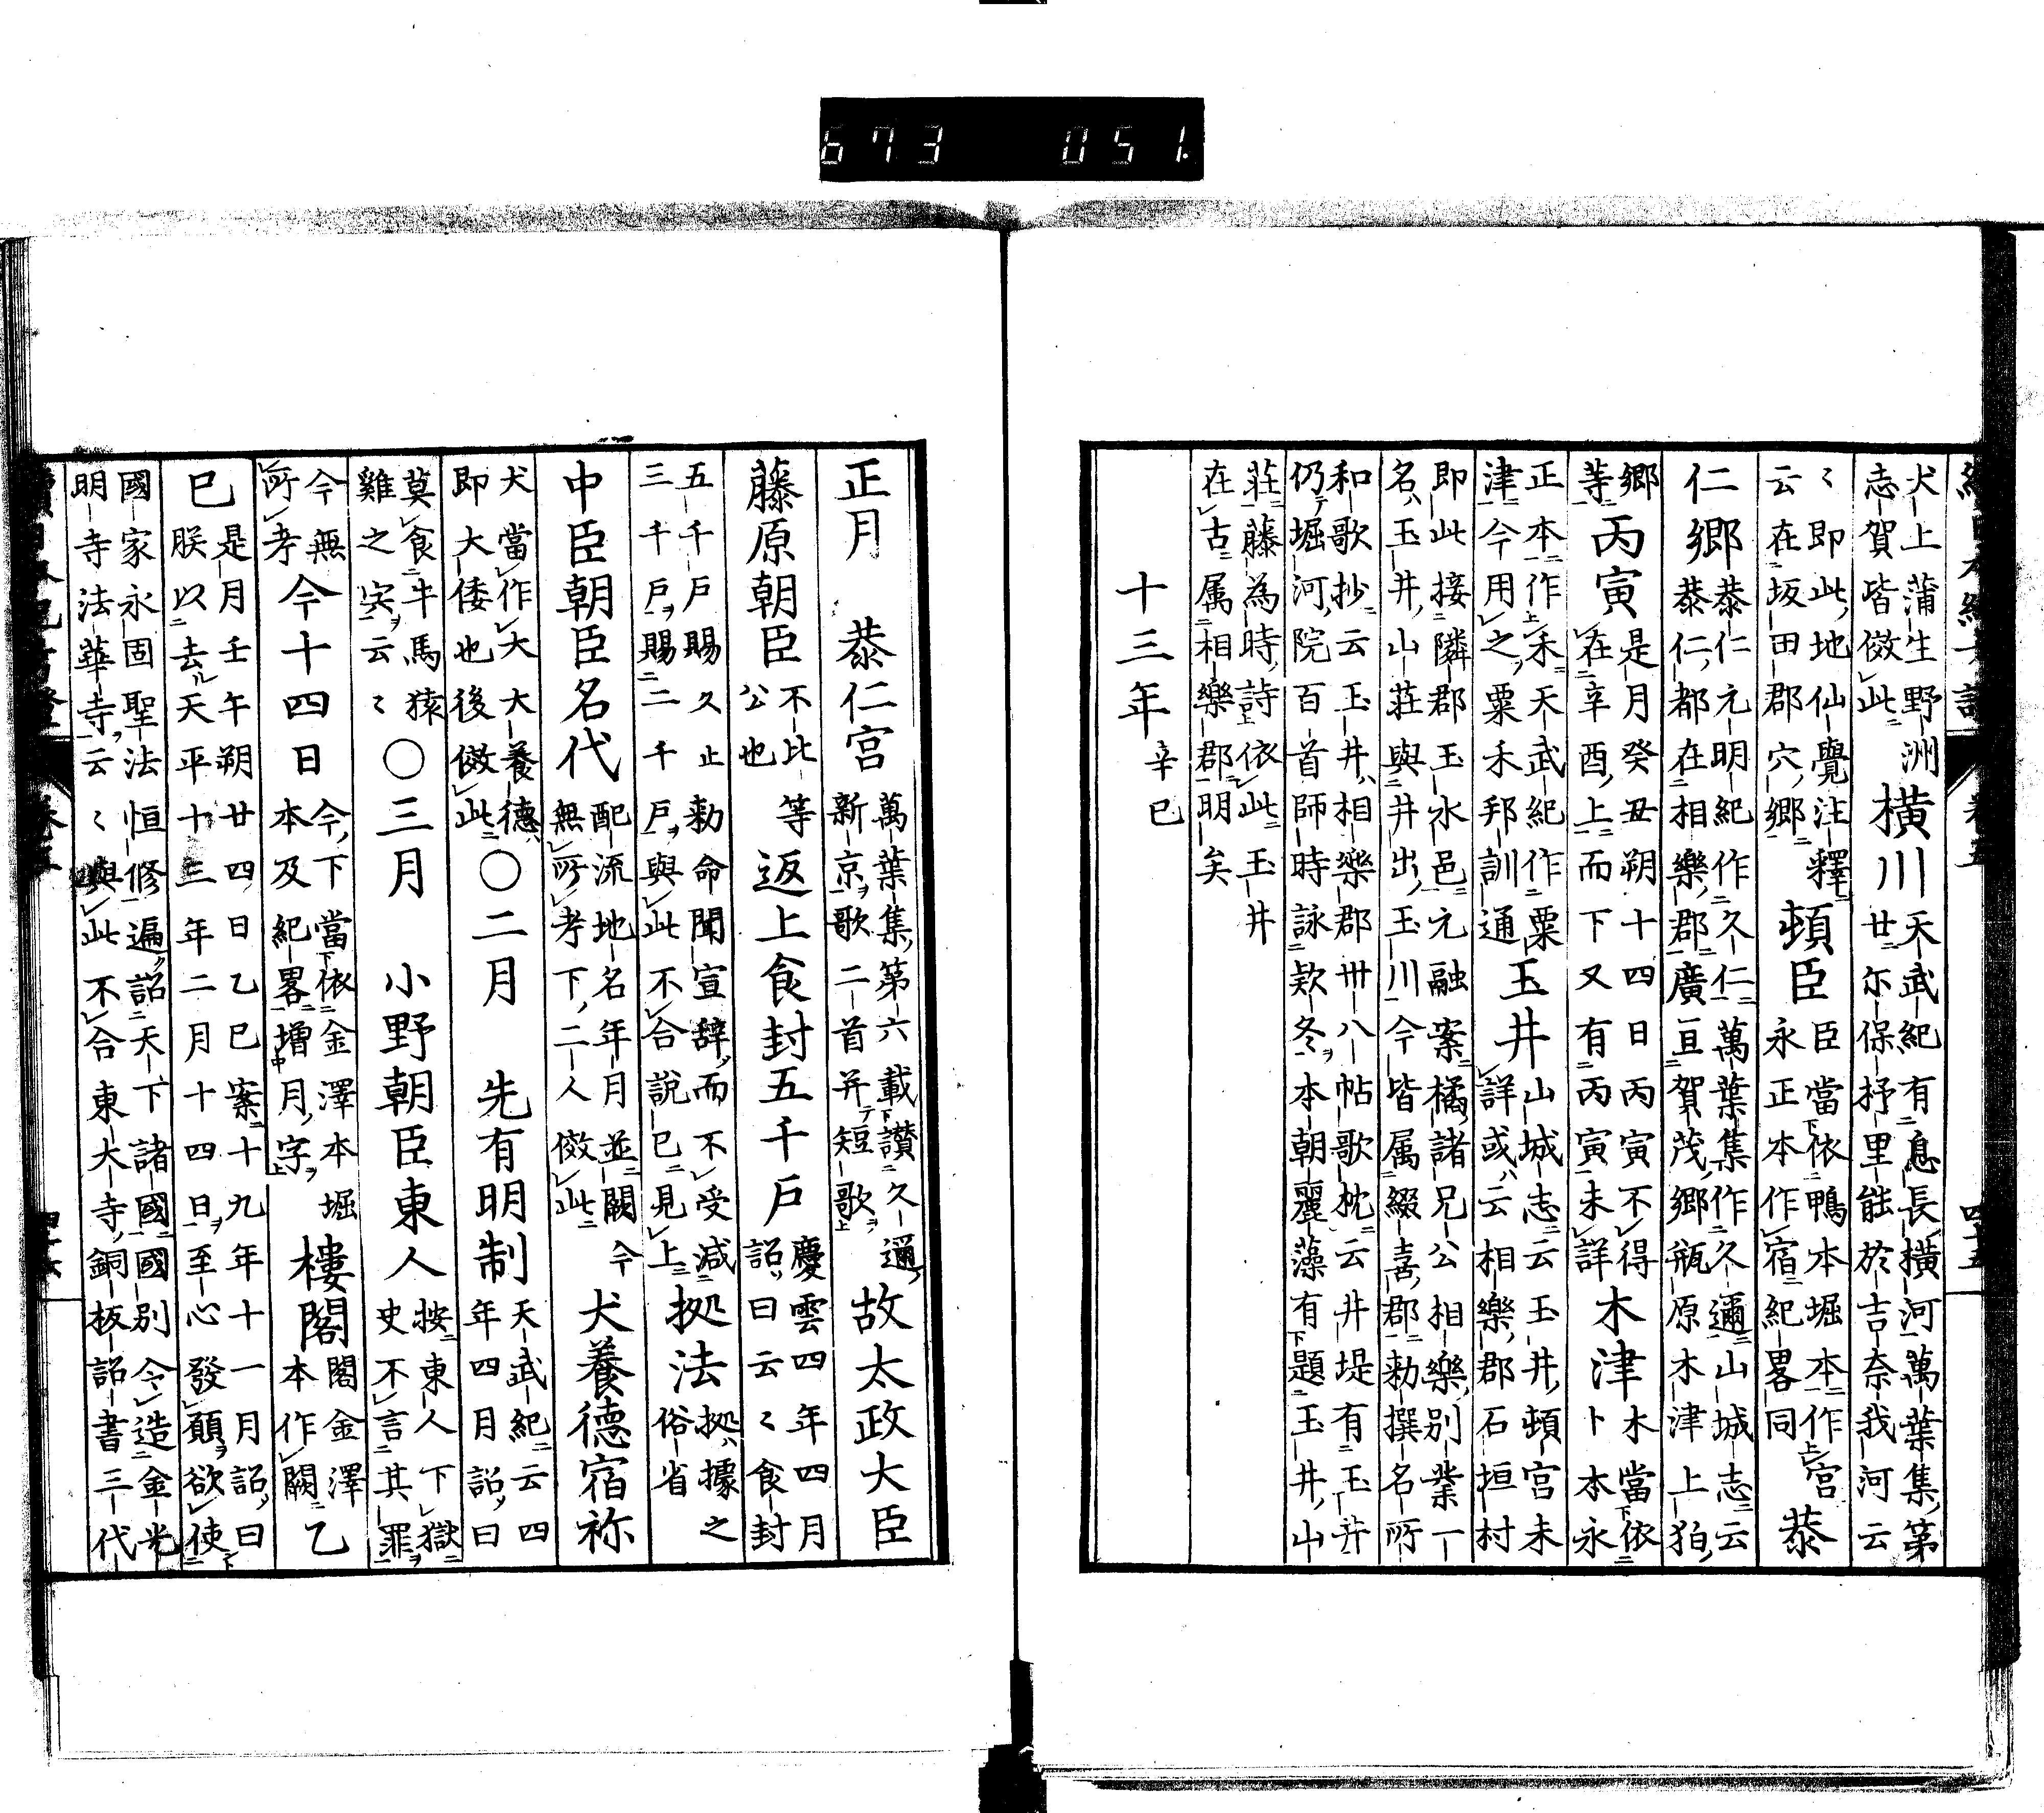 673 051.
犬上蒲生野洲 横川 天武紀有息長横河萬葉集第
志賀皆倣此 廿尓保抒里能於吉奈我河云
〻即此地仙覺注釋 頓臣 臣當依鴨本堀本作宮 恭
云在坂田郡穴郷 永正本作宿紀畧同
仁郷 恭仁元明紀作久仁萬葉集作久邇山城志云
恭仁都在相樂郡廣亘賀茂郷瓶原木津上狛
郷 丙寅 是月癸丑朔十四日丙寅不得 木津 木當依
等 在辛酉上而下又有丙寅未詳 卜本永
正本作禾天武紀作粟 玉井 山城志云玉井頓宮未
津今用之粟禾邦訓通 詳或云相樂郡石垣村
即此接隣郡玉水邑元融案橘諸兄公相樂別業一
名玉井山莊與井出玉川今皆属綴喜郡勅撰名所
和歌抄云玉井相樂郡卅八帖歌枕云井堤有玉井
仍堀河院百首師時詠欵冬本朝麗藻有題玉井山
莊藤為時詩依此玉井
在古属相樂郡明矣
十三年 辛巳
正月 恭仁宮 萬葉集第六載讃久邇 故太政大臣
新京歌二首并短歌
藤原朝臣 不比等 返上食封五千戸 慶雲四年四月
公也 詔曰云〻食封
五千戸賜久止勅命聞宣辞而不受減 拠法 拠據之
三千戸賜二千戸與此不合説已見上 俗省
中臣朝臣名代 配流地名年月並闕今 犬養徳宿祢
無所考下二人倣此
犬當作大大養徳 〇二月 先有明制 天武紀云四
即大倭也後倣此 年四月詔曰
莫食牛馬猿 〇三月 小野朝臣東人 按東人下獄
雞之宍云〻 史不言其罪
今無 今十四日 今下當依金澤本堀 樓閣 閣金澤 乙
所考 本及紀畧増月字 本作闕
巳 是月壬午朔廿四日乙巳案十九年十一月詔曰
朕以去天平十三年二月十四日至心發願欲使
國家永固聖法恒修遍詔天下諸國國別令造金光
明寺法華寺云〻與此不合東大寺銅板詔書三代